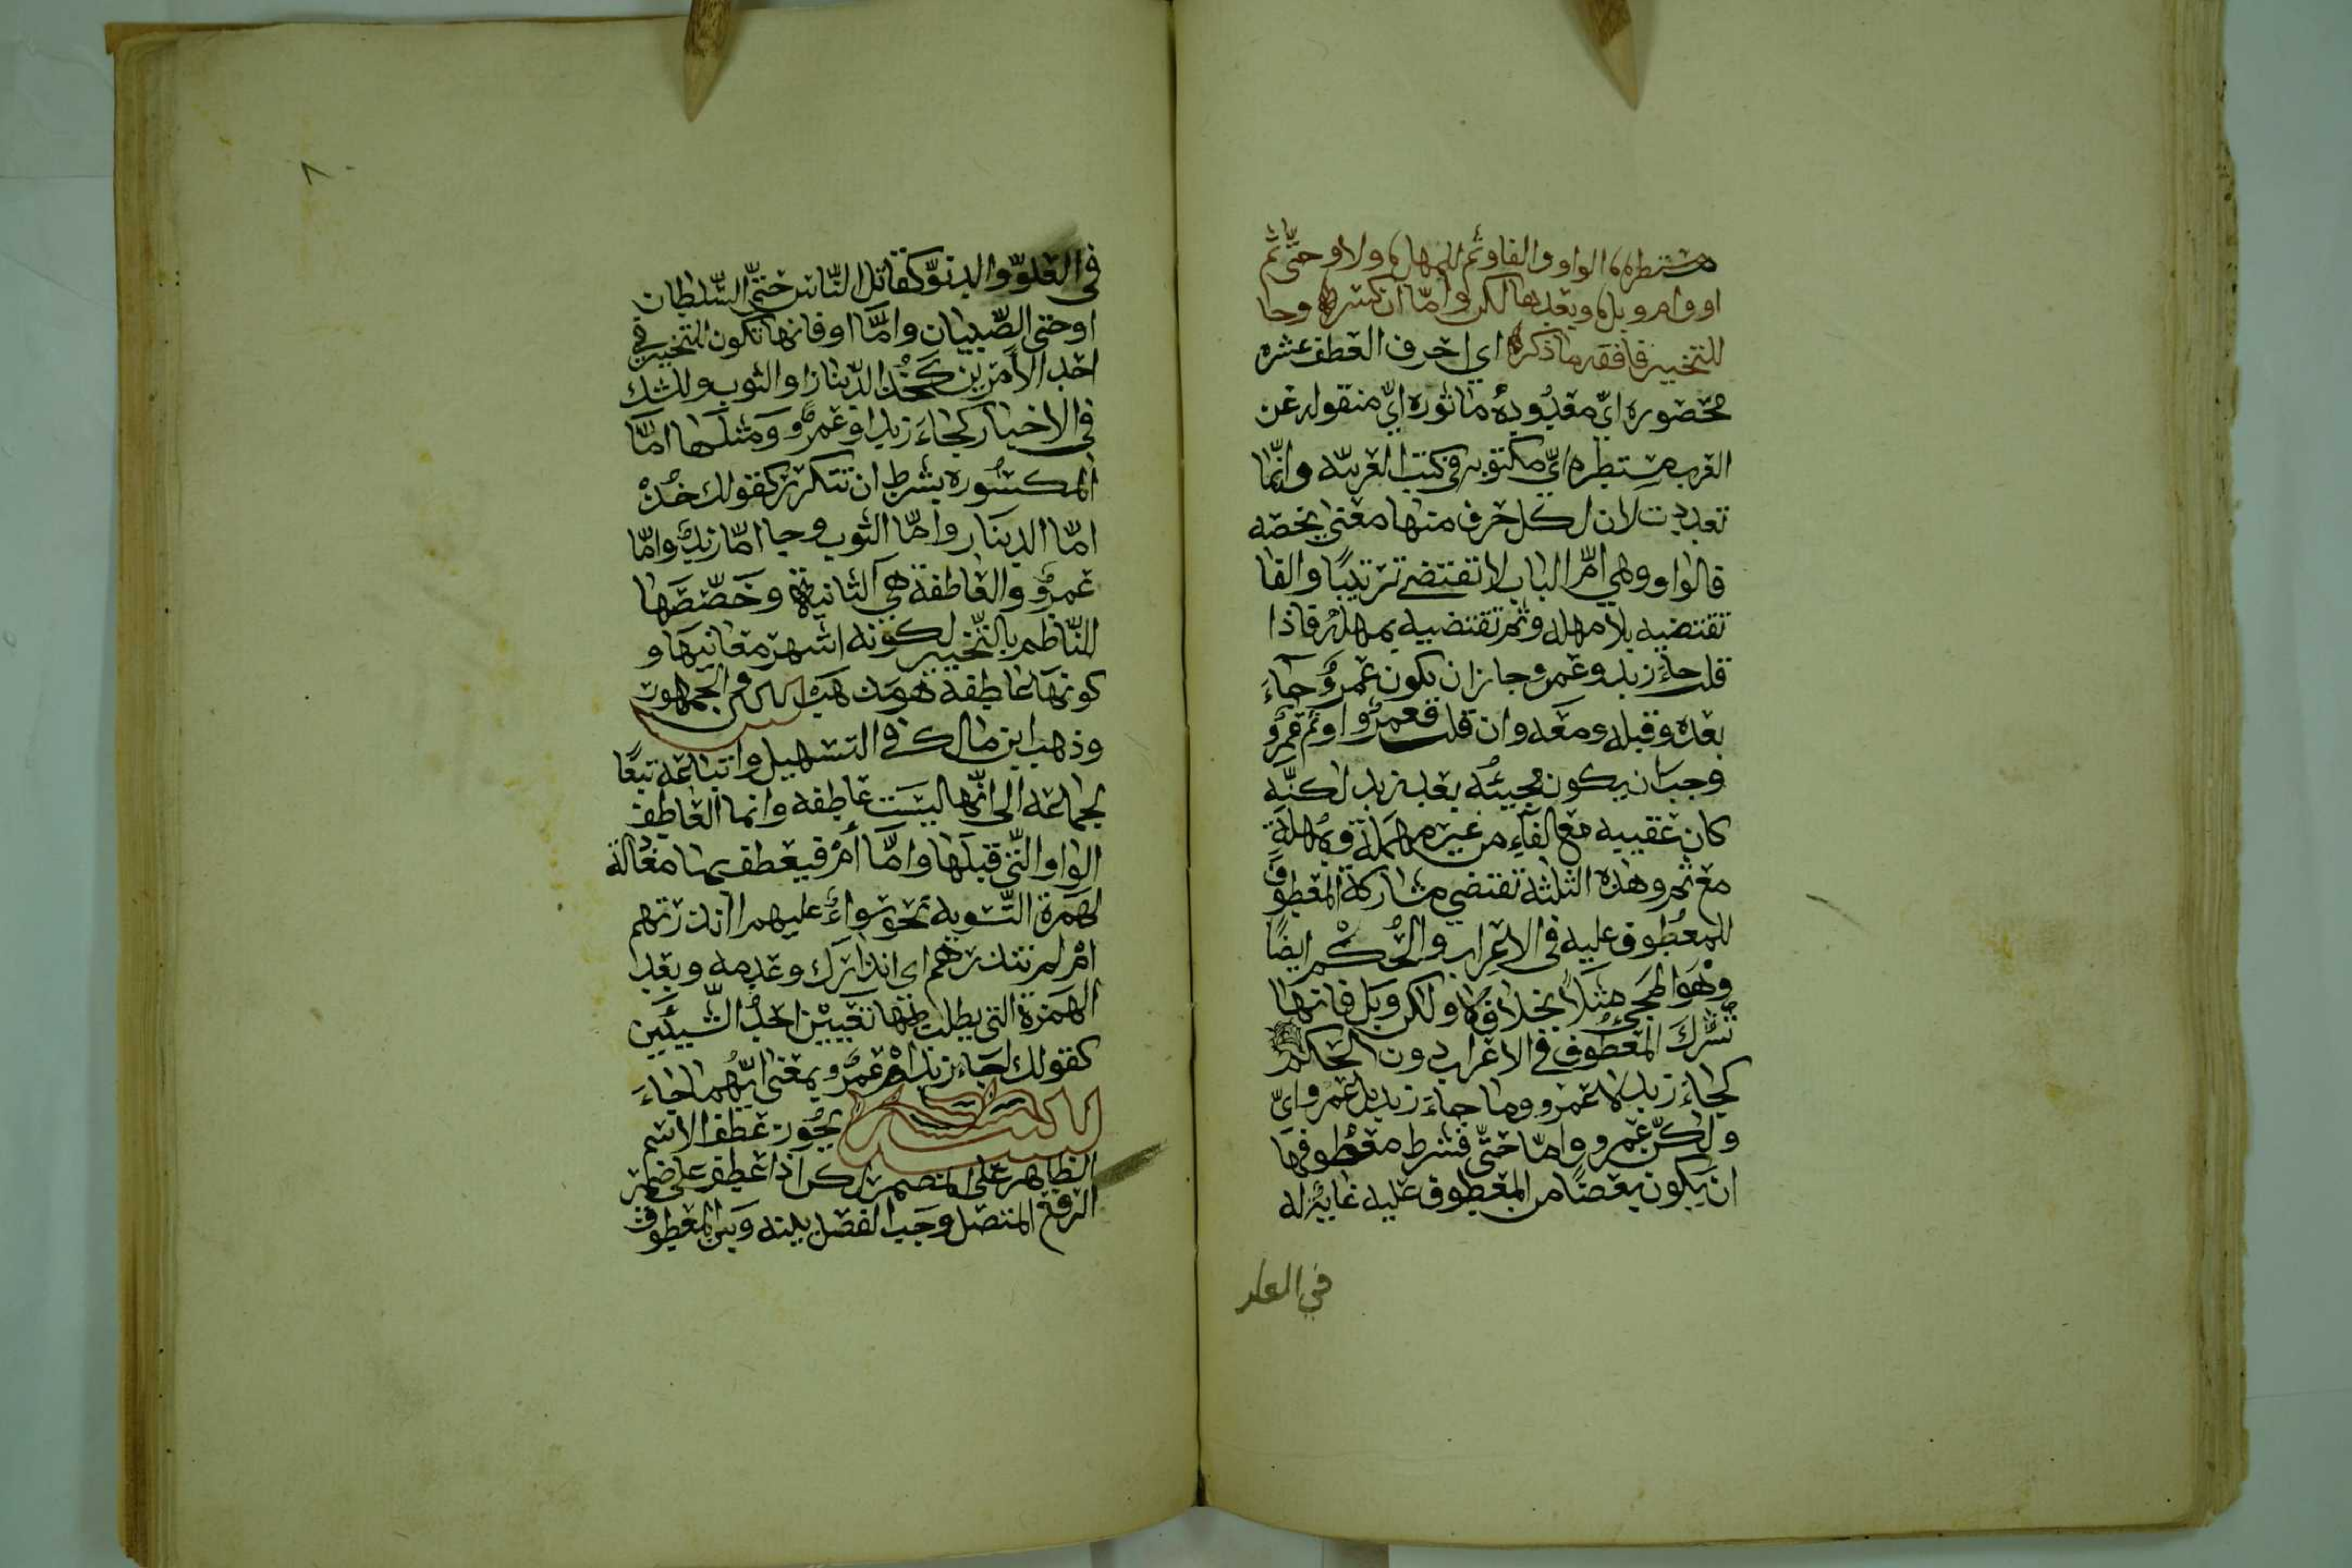 مستطره الواو والفا وثم للمهل ولا وحتى ثم
او وام وبل وبعدها لكن واما ان كسر وجا
للتخيير فافقه ما ذكر اي احرف العطف عشره
محصوره ايّ معدُودهُ ماثوره ايّ منقوله عن
العرب مستطره ايّ مكتوبه في كتب العربيّه وانّما
تعددت لان لكل حرف منها معنى يخصه
فالواو وهي امّ الباب لا تقتضي ترتيبًا والفا
تقتضيه بلا مهله وثم تقتضيه بمهله فاذا
قلت جاء زيد وعمرو جاز ان يكون عمروٌ جاءَ
بعده وقبله ومعه وان قلت فعمروٌ او ثم عمروٌ
وجب ان يكون مجيئُه بعد زيد لكنّه
كان عقيبه مع الفاءِ من غير مهملة وبمُهلةٍ
مع ثم وهذه الثلثة تقتضي مشاركة المعطوف
للمعُطوف عليه في الاعراب والحُكم ايضًا
وهوَ المجيءُ مثلاً بخلاف لا ولكن وبل فانها
تُشّركَ المعطُوف في الاعراب دون الحكم
كجاءَ زيد لا عمرو وما جاءَ زيد بل عمرو ايّ
ولكنّ عمرو واما حتّى فشرط معطوفها
ان يكون بعضًا من المعطوف عليه غايةً له
في العلو
في العلوّ والدنوّ كقاتل النّاس حتّى السّلطان
او حتى الصّبيان وامَّا او فانها تكون للتخيير في
احد الأمرين كخُذ الدّينار او الثوب وللشك
في الاخبار كجاءَ زيد او عمروٌ ومثلها امَّا
المكسُوره بشرط ان تتكرر كقولك خُذْ
امّا الدينَار وامّا الثوب وجا امّا زيدٌ وامّا
عمروٌ والعاطفة هي الثانية وخَصّصَها
النّاظم بالتّخيير لكونه اشهر معانيهَا و
كونهَا عاطفة هو مذهب الجمهور
وذهب ابن مالك في التسهيل واتباعه تبعًا
لجماعه الى انّها ليسَت عاطفه وانما العاطف
الواو الّتي قبلَها وامَّا أمْ فيعطف بها معادلة
لهمزة التّسويه نحو سَواءٌ عليهم اانذرتهم
امْ لم تنذرهم اي انذارك وعدمه وبعد
الهَمزة التي يطلب بها تعيين احدُ الشّيئَين
كقولك اجَاء زيد امْ عمروٌ بمعنى ايّهُما جاءَ
يجُوز عطف الاسْم
الظاهر على المضمر لكن اذا عُطف على ضمير
الرفع المتصل وجب الفصل بينه وَبين المعطوف